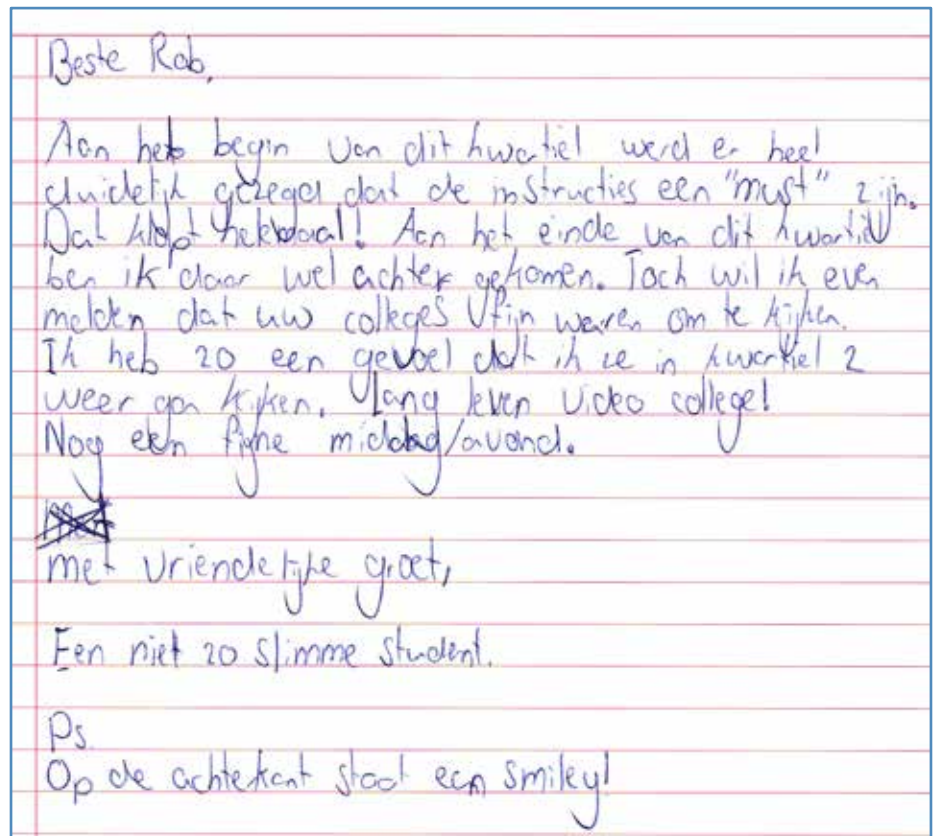 Beste Rob,
Aan het begin van dit kwartiel werd er heel
duidelijk gezegd dat de instructies een "must" zijn.
Dat klopt helemaal! Aan het einde van dit kwartiel
ben ik daar wel achter gekomen. Toch wil ik even
melden dat uw colleges fijn waren om te kijken.
Ik heb zo een gevoel dat ik ze in kwartiel 2
weer ga kijken. Lang leven video college!
Nog een fijne middag/avond.
met vriendelijke groet,
Een niet zo slimme student.
Ps.
Op de achterkant staat een smiley!